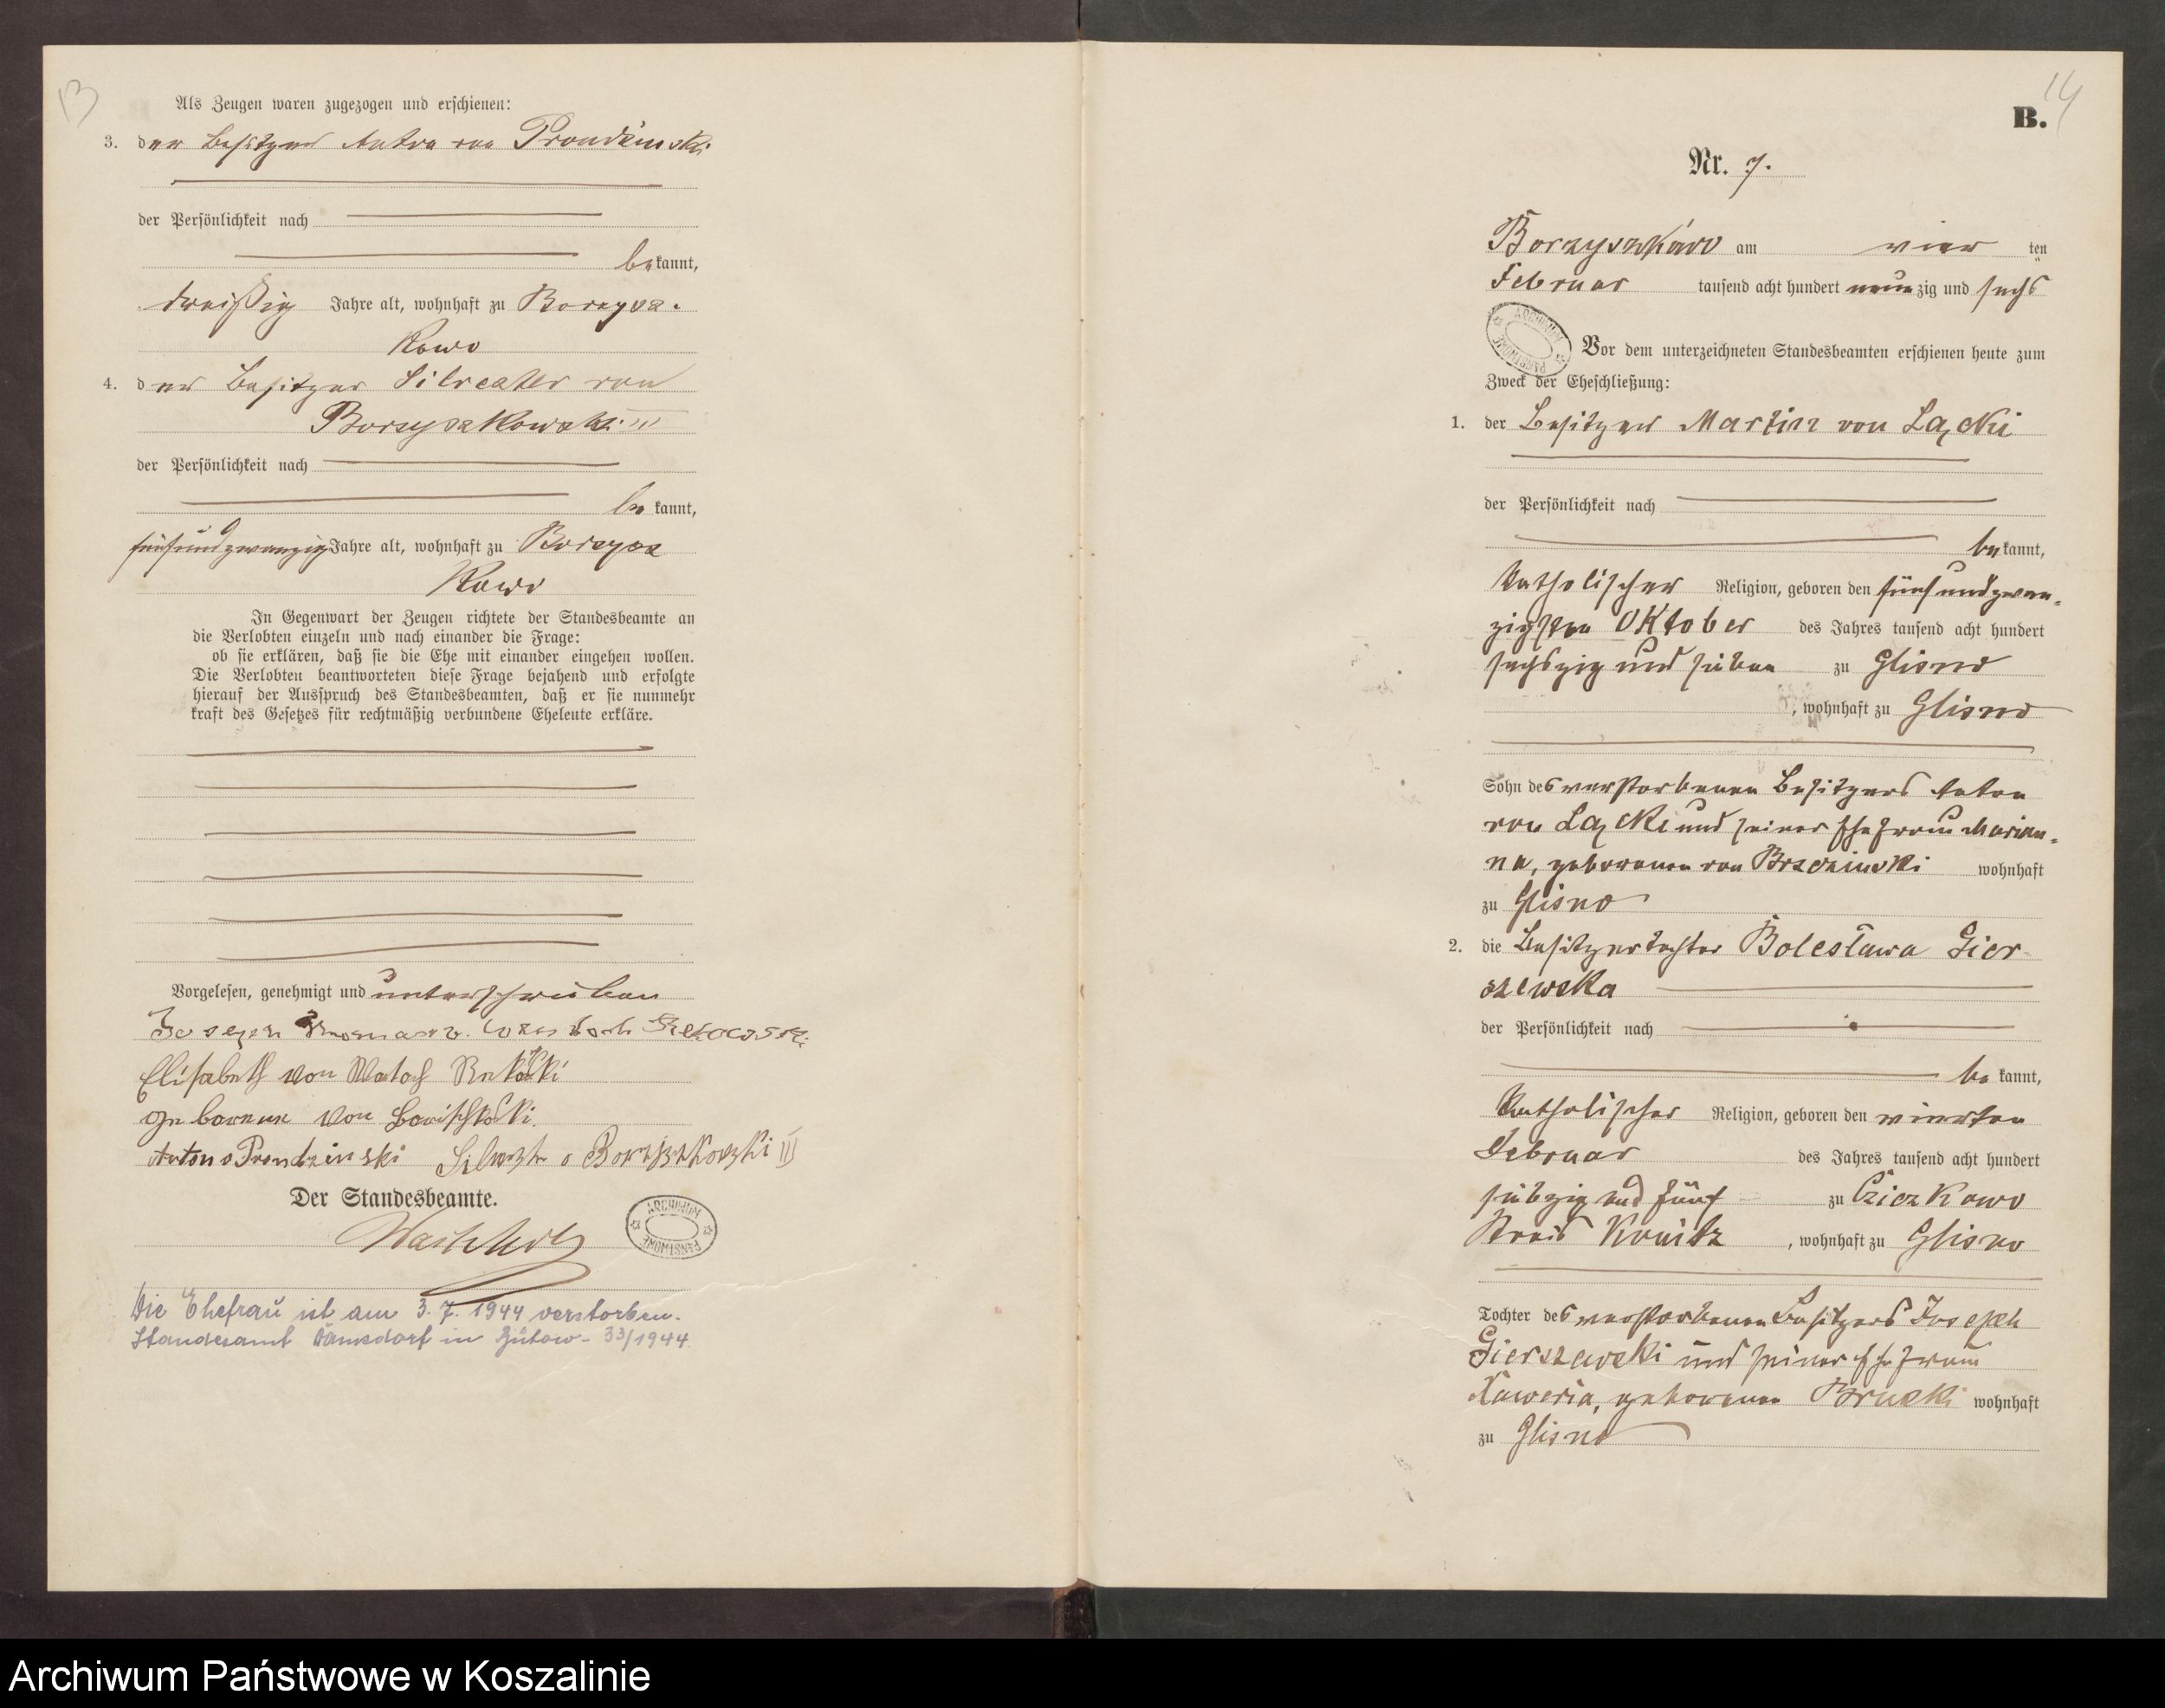 13
Als Zeugen waren zugezogen und erschienen:
3. der Besitzer Anton von Prondzinski
der Persönlichkeit nach
bekannt,
dreißig Jahre alt, wohnhaft zu Borzysz-
kowo
4. der Besitzer Silvester von
Borzyszkowski III
der Persönlichkeit nach
bekannt,
fünfundzwanzig Jahre alt, wohnhaft zu Borzysz
kowo
In Gegenwart der Zeugen richtete der Standesbeamte an
die Verlobten einzeln und nach einander die Frage:
ob sie erklären, daß sie die Ehe mit einander eingehen wollen.
Die Verlobten beantworteten diese Frage bejahend und erfolgte
hierauf der Ausspruch des Standesbeamten, daß er sie nunmehr
kraft des Gesetzes für rechtmäßig verbundene Eheleute erkläre.
Vorgelesen, genehmigt und unterschrieben
Joseph v.
Elisabeth von
geborene von
Anton v Prondzinski Silvester v Borzyszkowski III
Der Standesbeamte.
ARCHIWUM PAŃSTWOWE
Die Ehefrau ist am 3.7.1944 verstorben.
Standesamt in Bütow - 33/1944.
14
B.
Nr. 7.
Borzyszkowo am vier ten
Februar tausend acht hundert neunzig und sechs
ARCHIWUM PAŃSTWOWE
Vor dem unterzeichneten Standesbeamten erschienen heute zum
Zweck der Eheschließung:
1. der Besitzer Martin von Lącki
der Persönlichkeit nach
bekannt,
katholischer Religion, geboren den fünfundzwan-
zigsten Oktober des Jahres tausend acht hundert
sechszig und sieben zu Glisno
, wohnhaft zu Glisno
Sohn des verstorbenen Besitzers Anton
von Lącki und seiner Ehefrau Marian-
na, geborenen von Brzezinski wohnhaft
zu Glisno
2. die Besitzertochter Bolesława Gier-
szewska
der Persönlichkeit nach
bekannt,
katholischer Religion, geboren den vierten
Februar des Jahres tausend acht hundert
siebzig und fünf zu Cziczkowo
Kreis Konitz , wohnhaft zu Glisno
Tochter des verstorbenen Besitzers Joseph
Gierszewski und seiner Ehefrau
Xaweria, geborenen Bruski wohnhaft
zu Glisno
Archiwum Państwowe w Koszalinie